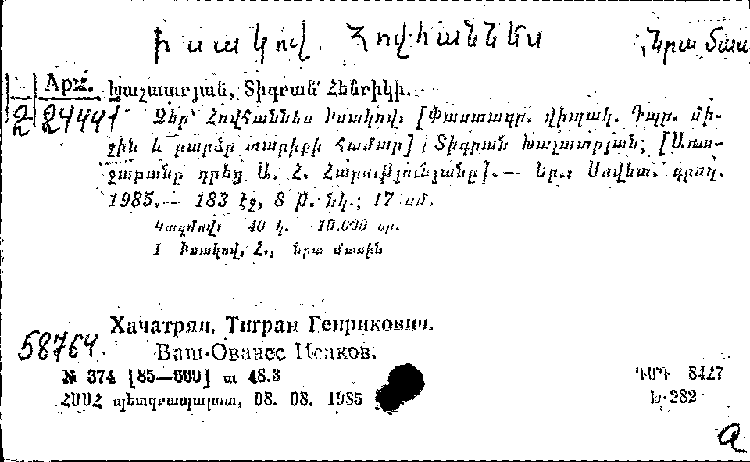 Իսակով Հովհաննես
Նրա մաս
Արտ. Խաչատրյան, Տիգրան Հենրիկի.
2 24441 Ձեր՝ Հովհաննես Իսակով. [Փաստագր. վիպակ. Դպր. մի-
ջին և բարձր տարիքի համար] / Տիգրան Խաչատրյան; [Առա-
ջաբանը գրեց Ա. Հ. Հարությունյանը].— Եր.: Սովետ. գրող,
1985.— 183 էջ, 8 թ. նկ.; 17 սմ.
Կազմով՝ 40 կ. 10.000 օր.
1 Իսակով, Հ., նրա մասին
Хачатрян, Тигран Генрикович.
58764. Ваш Ованес Исаков.
№ 374 [85—600] տ 48.3 ԴՄԴ 84Հ7
ՀՍՍՀ պետգրապալատ, 08. 08. 1985 Խ-282
a